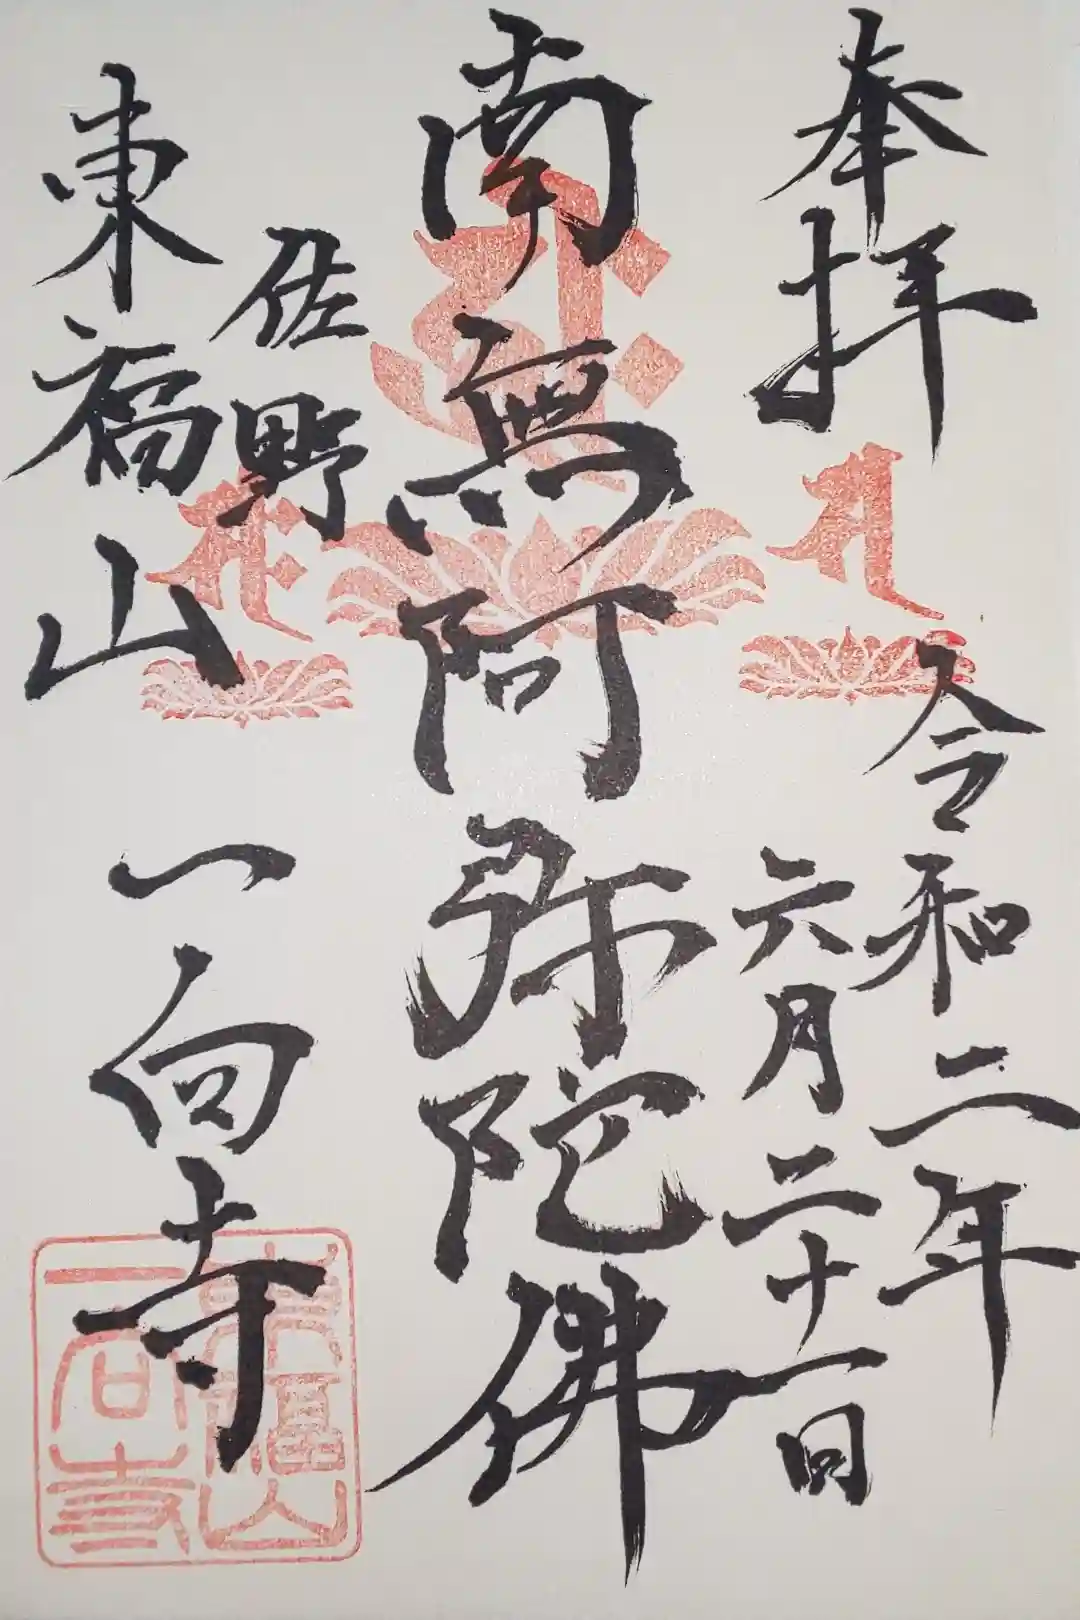 奉拝
令和二年
六月二十一日
南無阿弥陀佛
佐野
東福山 一向寺
東福山
一向寺